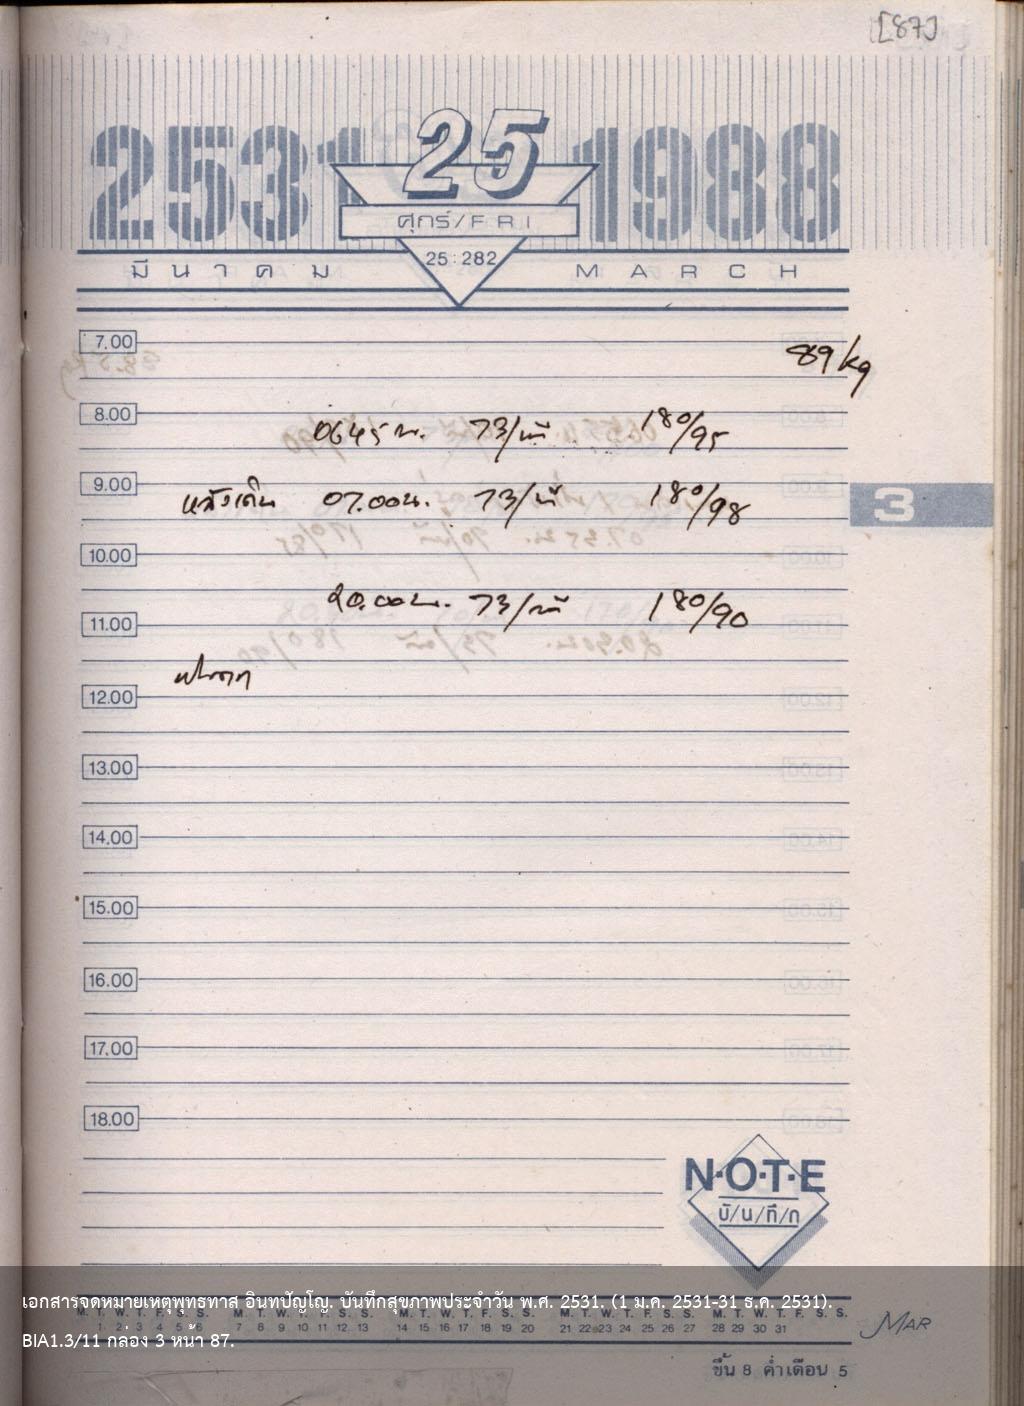 [87]
2531 25 1988
ศุกร์/FRI
25:282
มีนาคม MARCH
7.00
89 kg
8.00
0645 น. 73/นาที 180/95
9.00
หลังเดิน 07.00น. 73/นาที 180/98
3
10.00
20.00น. 73/นาที 180/90
11.00
12.00
13.00
14.00
15.00
16.00
17.00
18.00
N·O·T·E
บั/น/ทึ/ก
เอกสารจดหมายเหตุพุทธทาส อินทปัญโญ. บันทึกสุขภาพประจำวัน พ.ศ. 2531. (1 ม.ค. 2531-31 ธ.ค. 2531).
M. T. W. T. F. S. S. M. T. W. T. F. S. S. M. T. W. T. F. S. S. M. T. W. T. F. S. S. M. T. W. T. F. S. S.
1 2 3 4 5 6 7 8 9 10 11 12 13 14 15 16 17 18 19 20 21 22 23 24 25 26 27 28 29 30 31
MAR
BIA1.3/11 กล่อง 3 หน้า 87.
ขึ้น 8 ค่ำเดือน 5